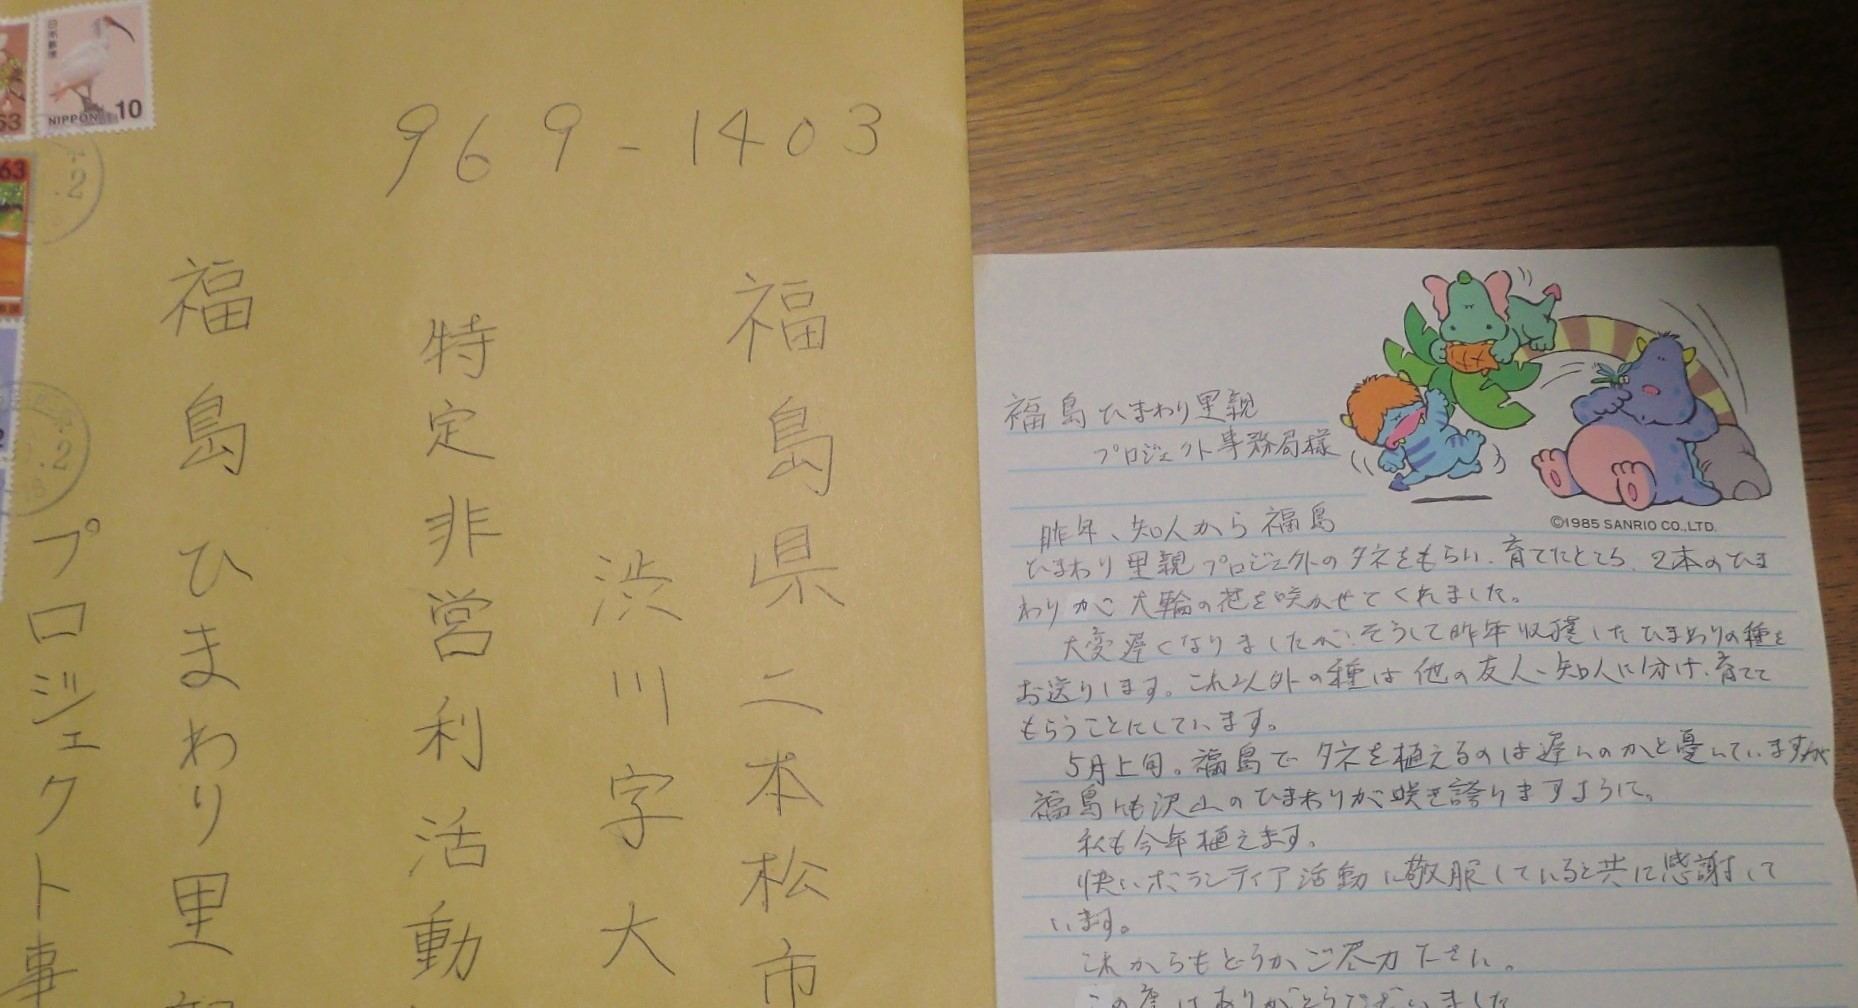 日本郵便
NIPPON 10
63
63
.2
.2
18
969-1403
福島県二本松市
渋川字大
特定非営利活動
福島ひまわり里親
プロジェクト事
©1985 SANRIO CO.,LTD.
福島ひまわり里親
プロジェクト事務局様
昨年、知人から福島
ひまわり里親プロジェクトのタネをもらい、育てたところ、2本のひま
わりが大輪の花を咲かせてくれました。
大変遅くなりましたが、そうして昨年収穫したひまわりの種を
お送りします。これ以外の種は他の友人、知人に分け、育てて
もらうことにしています。
5月上旬。福島でタネを植えるのは遅いのかと憂いていますが
福島にも沢山のひまわりが咲き誇りますように。
私も今年植えます。
快いボランティア活動に敬服していると共に感謝して
います。
これからもどうかご尽力下さい。
この度はありがとうございました